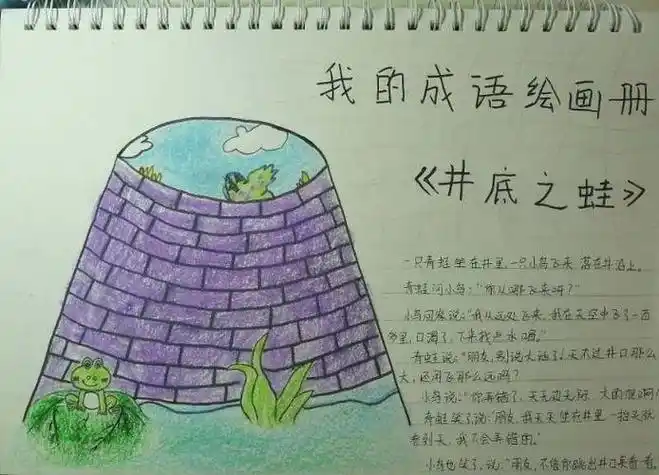 我的成语绘画册
《井底之蛙》
一只青蛙坐在井里,一只小鸟飞来,落在井沿上。
青蛙问小鸟:“你从哪飞来呀?”
小鸟回答说:“我从远处飞来,我在天空中飞了一百
多里,口渴了,下来找点水喝。”
青蛙说:“朋友,别说大话了!天不过井口那么
大,还用飞那么远吗?
小鸟说:“你弄错了,天无边无际,大的很啊
青蛙笑了,说:“朋友,我天天坐在井里,一抬头就
看到天,我不会弄错的。”
小鸟也笑了,说:“朋友,